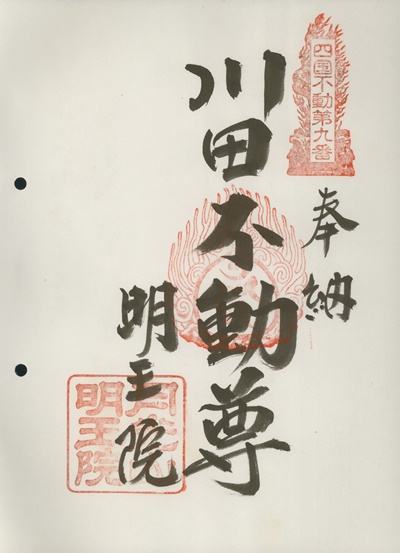 四國不動第九番
奉納
川田不動尊
明王院
明王院